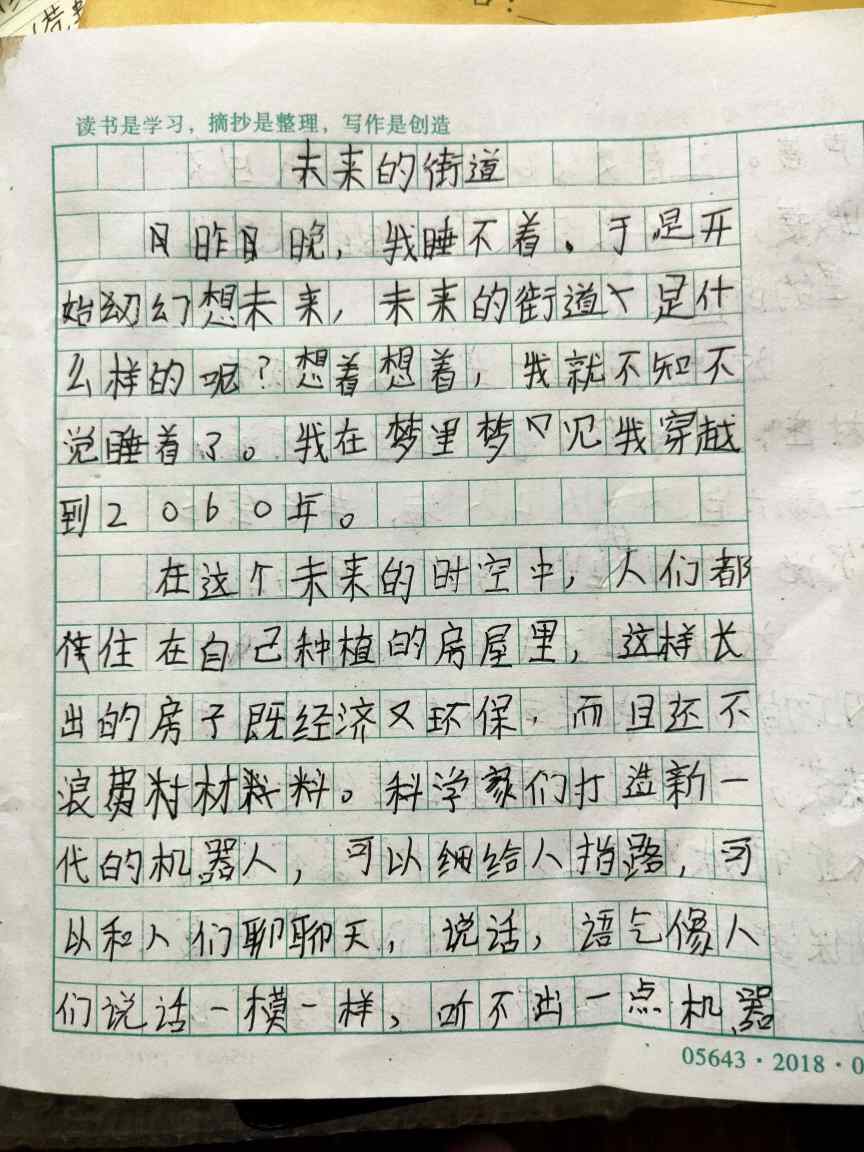 读书是学习，摘抄是整理，写作是创造
未来的街道
昨晚，我睡不着。于是开
始幻想未来，未来的街道是什
么样的呢？想着想着，我就不知不
觉睡着了。我在梦里梦见我穿越
到2060年。
在这个未来的时空中，人们都
住在自己种植的房屋里，这样长
出的房子既经济又环保，而且还不
浪费材料。科学家们打造新一
代的机器人，可以给人指路，可
以和人们聊聊天，说话，语气像人
们说话一模一样，听不出一点机器
05643·2018·0